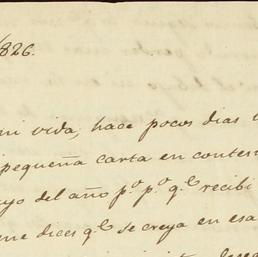 1826.
mi vida, hace pocos dias
pequeña carta en contes
yo del año p.º p.º q.e recibi
me dices q.e se creya en esa